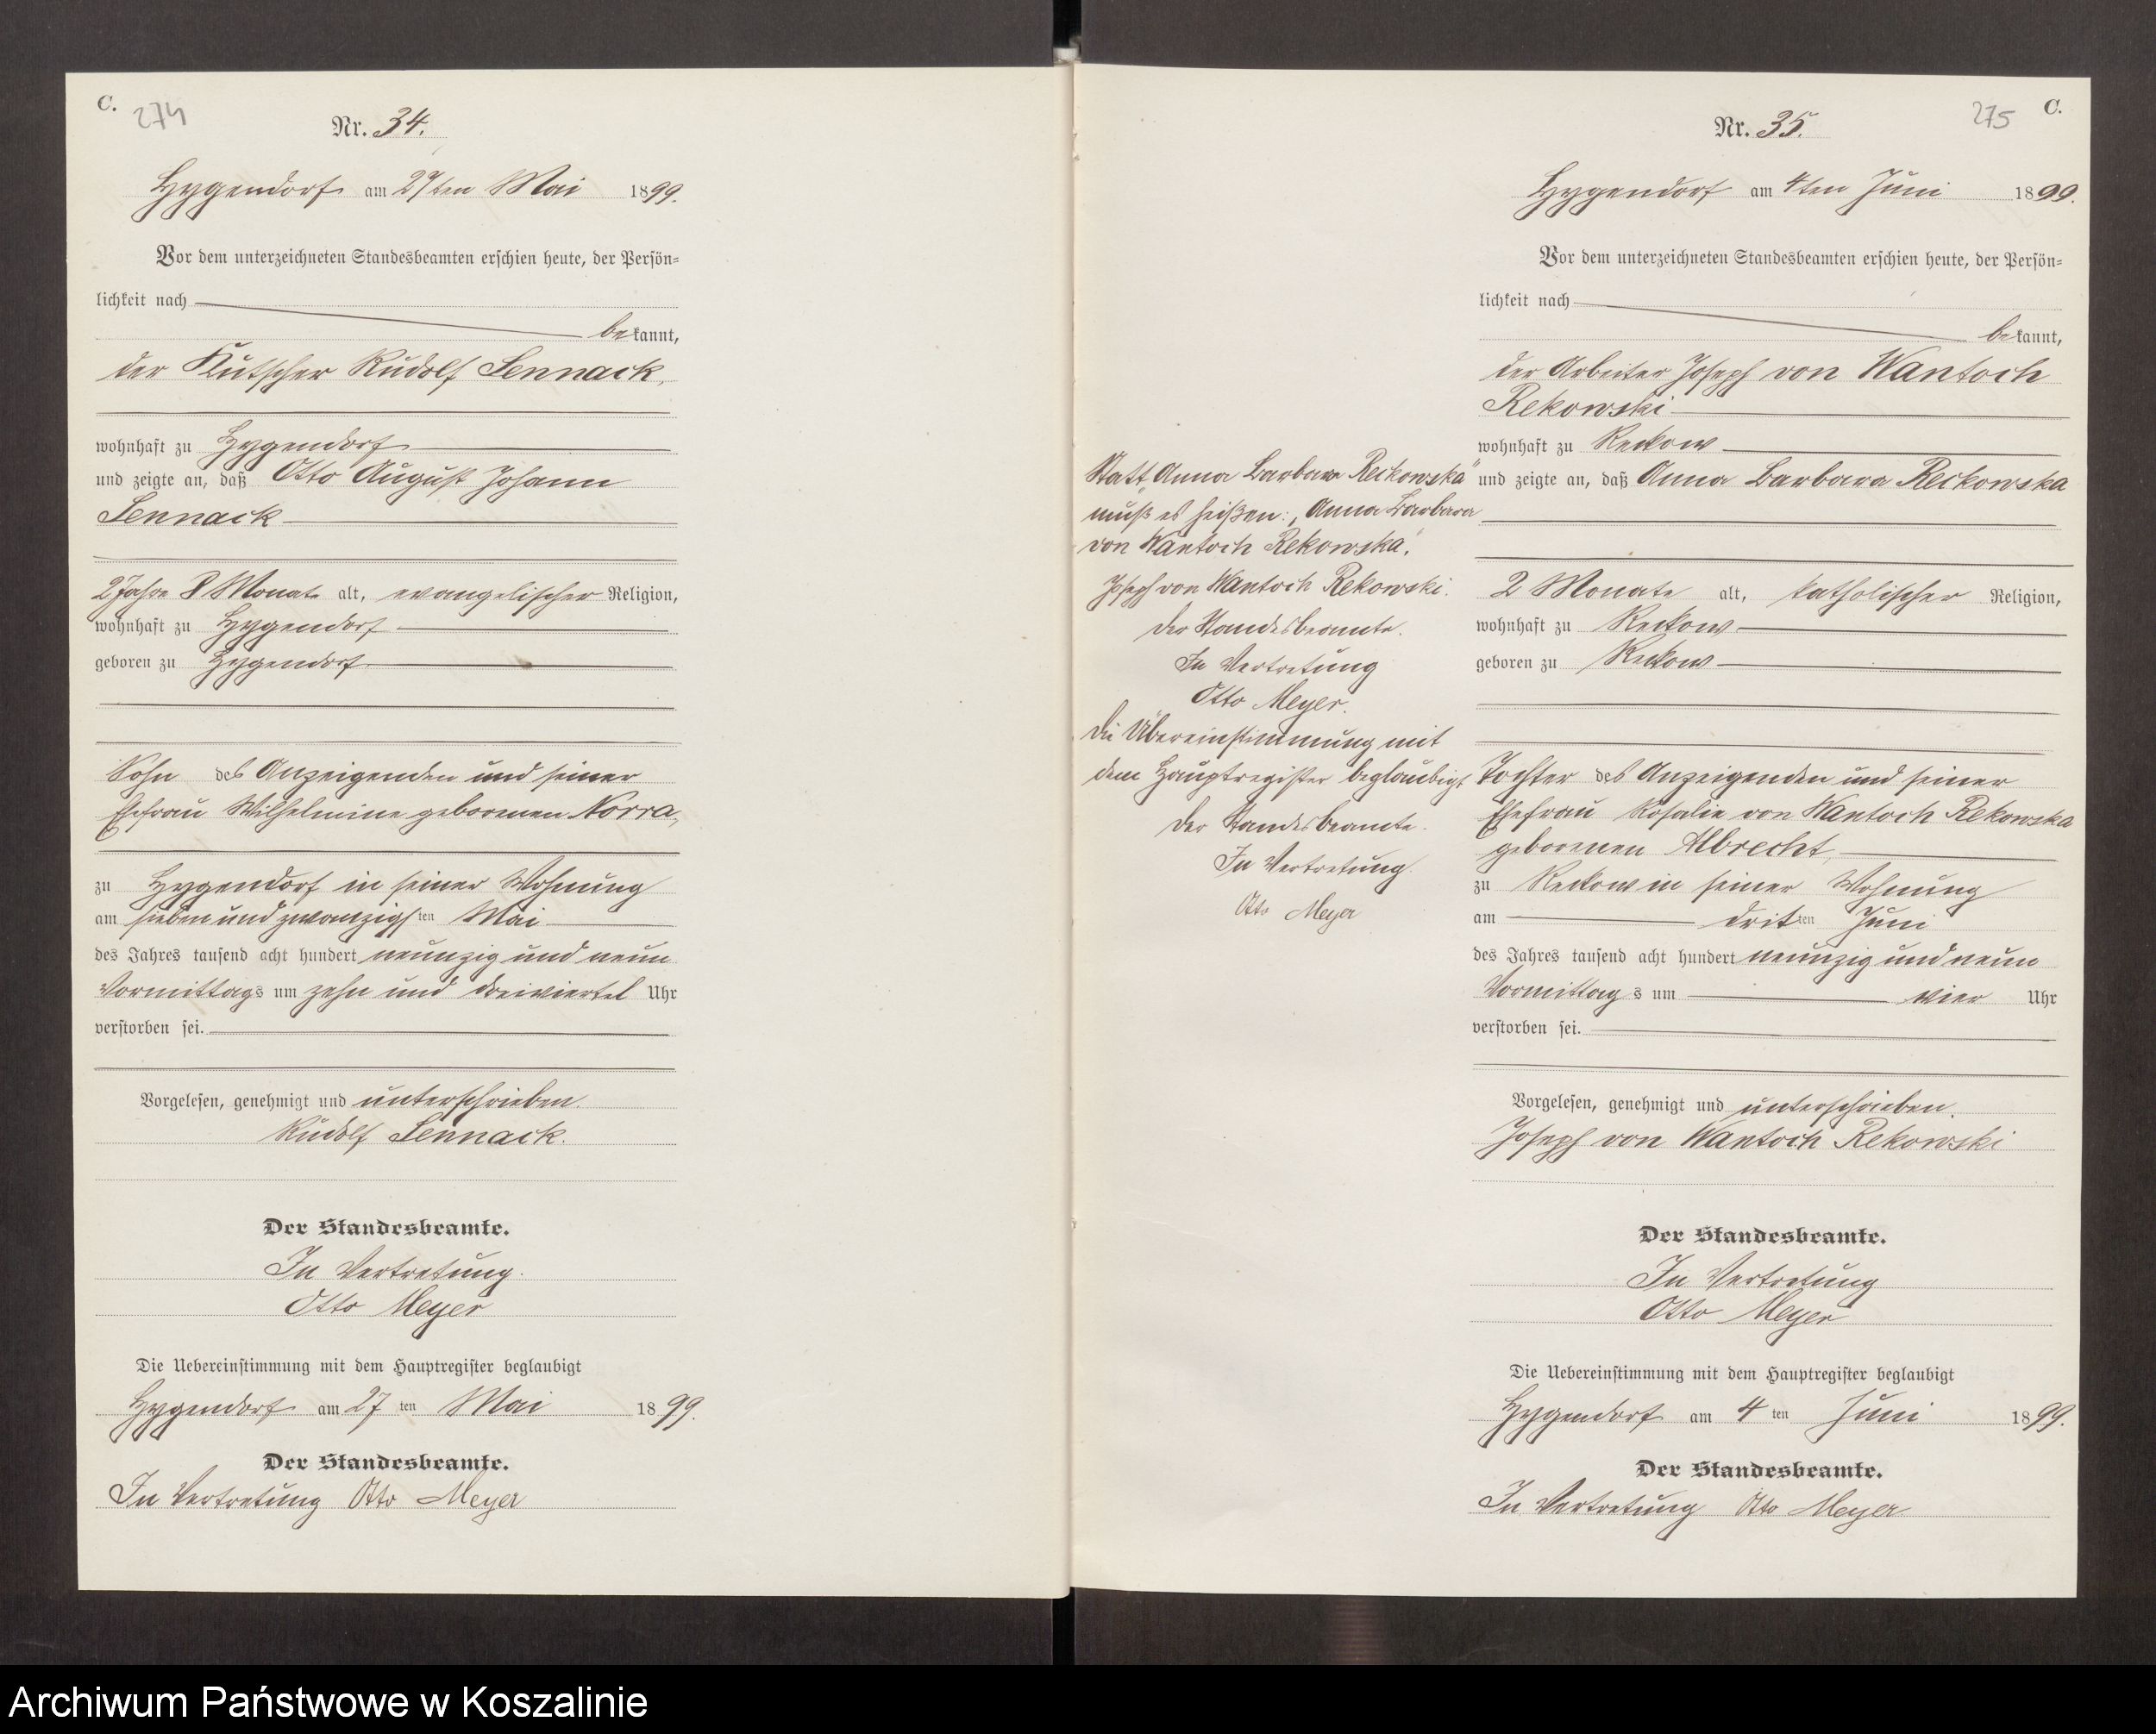 C.
274
Nr. 34.
Hygendorf am 27ten Mai 1899.
Vor dem unterzeichneten Standesbeamten erschien heute, der Persön-
lichkeit nach
bekannt,
der Kutscher Rudolf Lennack,
wohnhaft zu Hygendorf
und zeigte an, daß Otto August Johann
Lennack
2 Jahre 8 Monate alt, evangelischer Religion,
wohnhaft zu Hygendorf
geboren zu Hygendorf
Sohn des Anzeigenden und seiner
Ehefrau Wilhelmine geborenen Norra,
zu Hygendorf in seiner Wohnung
am sieben und zwanzigsten Mai
des Jahres tausend acht hundert neunzig und neun
Vormittags um zehn und dreiviertel Uhr
verstorben sei.
Vorgelesen, genehmigt und unterschrieben.
Rudolf Lennack.
Der Standesbeamte.
In Vertretung.
Otto Meyer
Die Uebereinstimmung mit dem Hauptregister beglaubigt
Hygendorf am 27 ten Mai 1899.
Der Standesbeamte.
In Vertretung Otto Meyer
275
C.
Nr. 35.
Hygendorf am 4ten Juni 1899.
Vor dem unterzeichneten Standesbeamten erschien heute, der Persön-
lichkeit nach
bekannt,
der Arbeiter Joseph von Wantoch
Rekowski
wohnhaft zu Reckow
und zeigte an, daß Anna Barbara Reckowska
2 Monate alt, katholischer Religion,
wohnhaft zu Reckow
geboren zu Reckow
Tochter des Anzeigenden und seiner
Ehefrau Rosalie von Wantoch Rekowska
geborenen Albrecht,
zu Reckow in seiner Wohnung
am dritten Juni
des Jahres tausend acht hundert neunzig und neun
Vormittags um vier Uhr
verstorben sei.
Vorgelesen, genehmigt und unterschrieben.
Joseph von Wantoch Rekowski
Der Standesbeamte.
In Vertretung
Otto Meyer
Die Uebereinstimmung mit dem Hauptregister beglaubigt
Hygendorf am 4 ten Juni 1899.
Der Standesbeamte.
In Vertretung Otto Meyer
Statt "Anna Barbara Reckowska"
muß es heißen: "Anna Barbara
von Wantoch Rekowska."
Joseph von Wantoch Rekowski.
Der Standesbeamte.
In Vertretung
Otto Meyer.
Die Übereinstimmung mit
dem Hauptregister beglaubigt
Der Standesbeamte.
In Vertretung
Otto Meyer
Archiwum Państwowe w Koszalinie